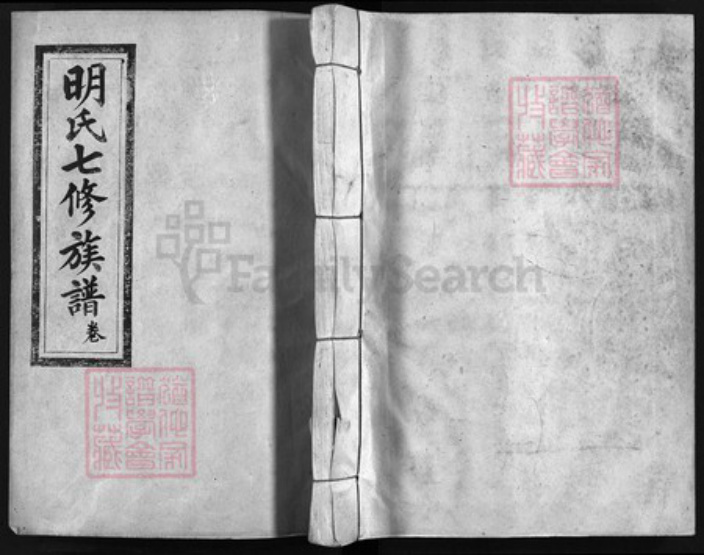 明氏七修族譜卷
FamilySearch
猶他家
譜學會
特藏
猶他家
譜學會
特藏